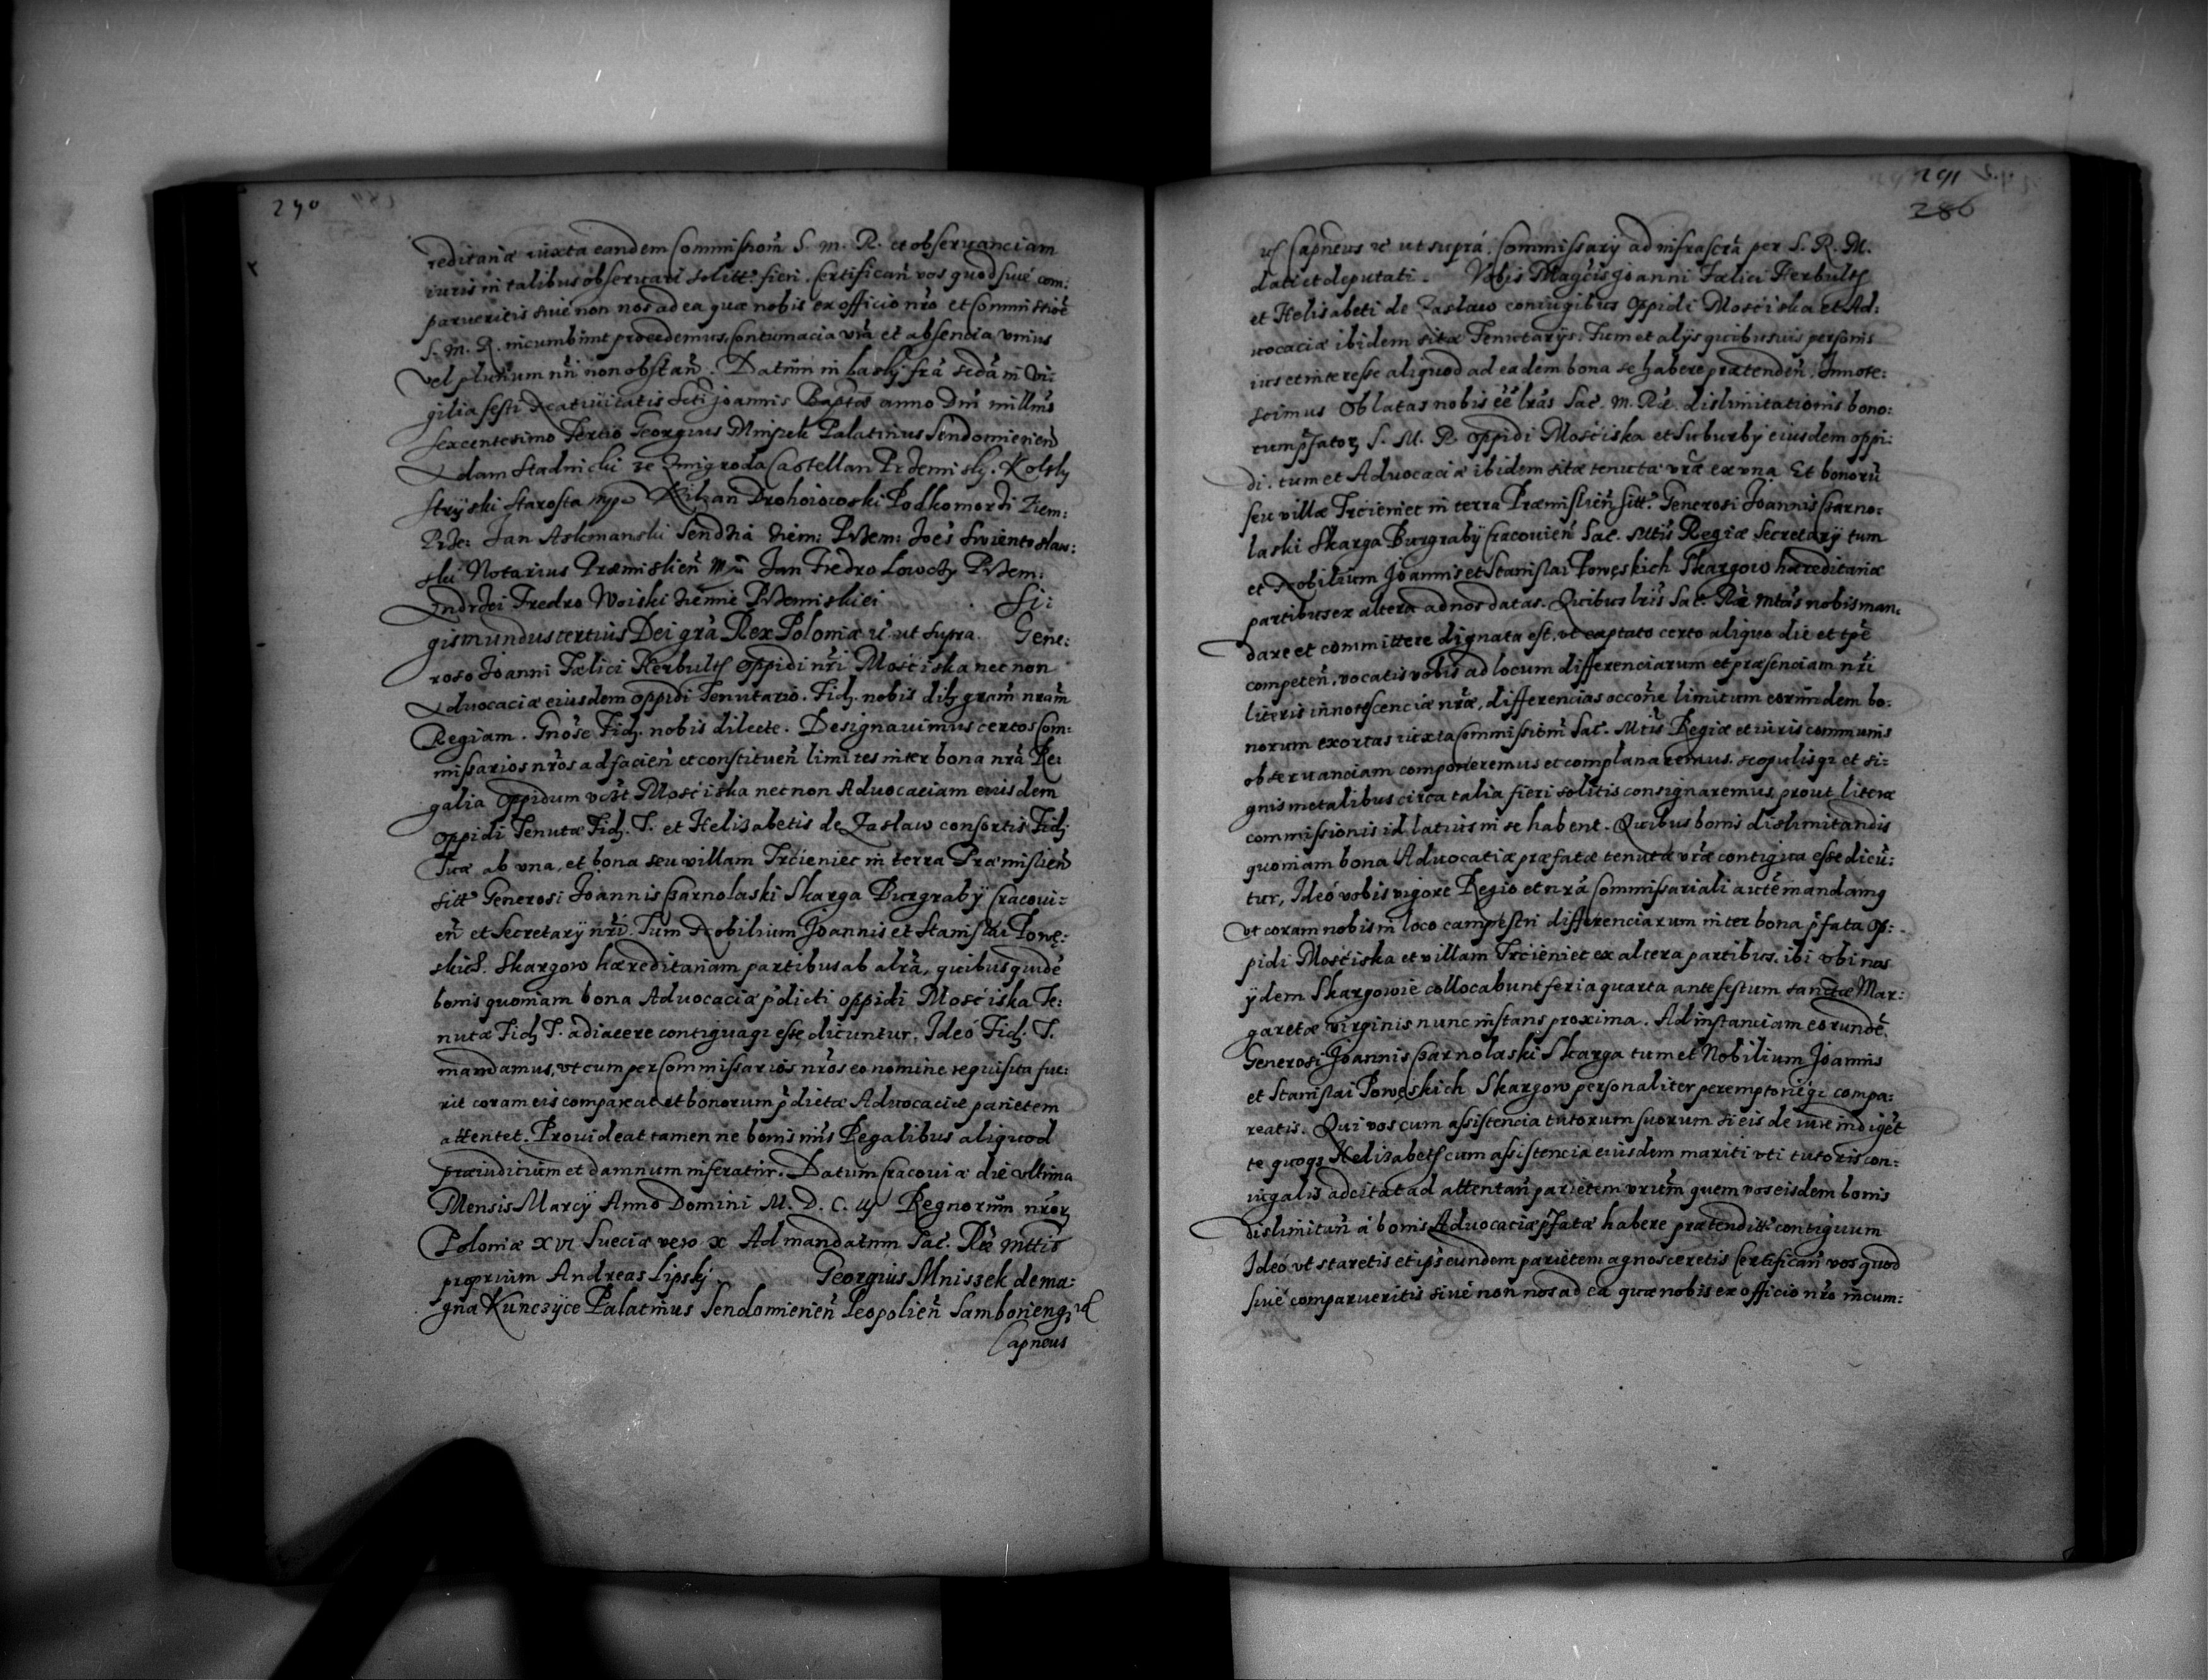 290
reditariæ iuxta eandem Commissionẽ S. M. R. et obseruanciam
iuris in talibus obseruari solitt. fieri. Certifican̄ vos quod siué com:
parueritis siué non nos ad ea quæ nobis ex officio nr̃o et Commissioē
S. M. R. incumbunt procedemus, contumacia vr̃a et absencia vnius
vel plurium nr̃i non obstan̄. Datum in Lasky fr̃a scdã in Vi:
gilia festi Natiuitatis Scti Joannis Baptæ anno Dni millmo
sexcentesimo Tertio Georgius Mnisek Palatinus Sendomirien̄
Adam Stadnicki ze Zmigroda Castellan Przemisly. Kolsky
Stryiski Starosta mpp Kilian Drohoiowski Podkomorzi Ziem:
Prze: Jan Aslemanski Sendzia ziem: Przem: Joēs Swientoslaw:
ski Notarius Præmislien̄ mp Jan Fredro Lowczy Przem:
Andrzei Fredro Woiski ziemie Przemiskiei Si:
gismundus tertius Dei grã Rex Poloniæ &c ut supra. Gene:
roso Joanni Fælici Herbultt oppidi nr̃i Mosciska nec non
Aduocaciæ eiusdem oppidi Tenutario. Fidꝫ. nobis dilꝫ gram̃ nram̃
Regiam. Gnōsē Fidꝫ. nobis dilecte. Designauimus certos Com:
missarios nr̃os ad facien̄ et constituen̄ limites inter bona nr̃a Re:
galia oppidum vcßt Mosciska nec non Aduocaciam eiusdem
oppidi Tenutæ Fidꝫ. T. et Helisabetis de Zaslaw consortis Fidꝫ
Tuæ ab vna, et bona seu villam Trcieniec in terra Præmislien̄
sitt Generosi Joannis Czarnolaski Skarga Burgrabÿ Cracoui:
en̄ et Secretarÿ nr̃i. Tum Nobilium Joannis et Stanislai Powę:
skich. Skargow hæreditariam partibus ab alr̃a, quibus quidē
bonis quoniam bona Aduocaciæ p̃dicti oppidi Mosciska Te:
nutæ Fidꝫ T. adiacere contiguaqꝫ esse dicuntur. Ideó Fidꝫ. T.
mandamus, vt cum per Commissarios nr̃os eo nomine requisita fue:
rit coram eis compareat et bonorum p̃dictæ Aduocaciæ parietem
attentet. Prouideat tamen ne bonis nr̃is Regalibus aliquod
præiudicium et damnum inferatur. Datum Cracouiæ die vltima
Mensis Marcÿ Anno Domini M. D. C. iij Regnorum nr̃orꝫ
Poloniæ XVI Sueciæ vero X Ad mandatum Sac. Ræ Mttis
proprium Andreas Lipskj. Georgius Mnissek de ma:
gna Kunczÿce Palatinus Sendomirien̄ Leopolien̄ Samborienqꝫ &c
Capneus
291
286
&c Capneus &c ut suprá. Commissarÿ ad infrascr̃a per S. R. M.
dati et deputati. Vobis Magcis Joanni Fælici Herbultt
et Helisabeti de Zaslaw coniugibus oppidi Mosciska et Ad:
uocaciæ ibidem sitæ Tenutarÿs. Tum et alÿs quibusuis personis
ius et interesse aliquod ad eadem bona se habere prætenden̄. Innote:
scimus Oblatas nobis eē lras Sac. M. Ræ. dislimitationis bono:
rum p̃fatorꝫ S. M. R. oppidi Mosciska et Suburbÿ eiusdem oppi:
di. tum et Aduocaciæ ibidem sitæ tenutæ vr̃æ ex vna Et bonorū
seu villæ Trcieniec in terra Præmislien̄ sitt. Generosi Joannis Czarno:
laski Skarga Burgrabÿ Cracouien̄ Sac. Mttis Regiæ Secretarÿ tum
et Nobilium Joannis et Stanislai Powęskich Skargow hæreditariæ
partibus ex altera ad nos datas. Quibus lris Sac. Ræ Mtas nobis man:
dare et committere dignata est, vt captato certo aliquo die et tp̃e
competen̄, vocatis vobis ad locum differenciarum et præsenciam nr̃i
literis innotescenciæ nr̃æ, differencias occoñe limitum eorundem bo:
norum exortas iuxta Commissionẽ Sac. Mtis Regiæ et iuris communis
obseruanciam componeremus et complanaremus. scopulisqꝫ et si:
gnis metalibus circa talia fieri solitis consignaremus, prout literæ
commissionis id latius in se habent. Quibus bonis dislimitandis
quoniam bona Aduocatiæ præfatæ tenutæ vr̃æ contigua esse dicū:
tur, Ideó vobis vigore Regio et nr̃a Commissariali autē mandamꝫ
vt coram nobis in loco campestri differenciarum inter bona p̃fata op:
pidi Mosciska et villam Trcieniec ex altera partibus. ibi vbi nos
ÿdem Skargowie collocabunt feria quarta ante festum sanctæ Mar:
garetæ virginis nunc instans proxima. Ad instanciam eorundē
Generosi Joannis Czarnolaski Skarga tum et Nobilium Joannis
et Stanislai Powęskich Skargow personaliter peremptorieqꝫ compa:
reatis. Qui vos cum assistencia tutorum suorum si eis de iure indiget
te quoqꝫ Helisabett cum assistencia eiusdem mariti vti tutoris con:
iugalis adcitat ad attentan̄ parietem vrum̃ quem vos eisdem bonis
dislimitan̄ á bonis Aduocaciæ p̃fatæ habere prætenditt contiguum
Ideó vt staretis et ips̄ eundem parietem agnosceretis Certifican̄ vos quod
siué comparueritis siué non nos ad ea quæ nobis ex officio nr̃o incum: